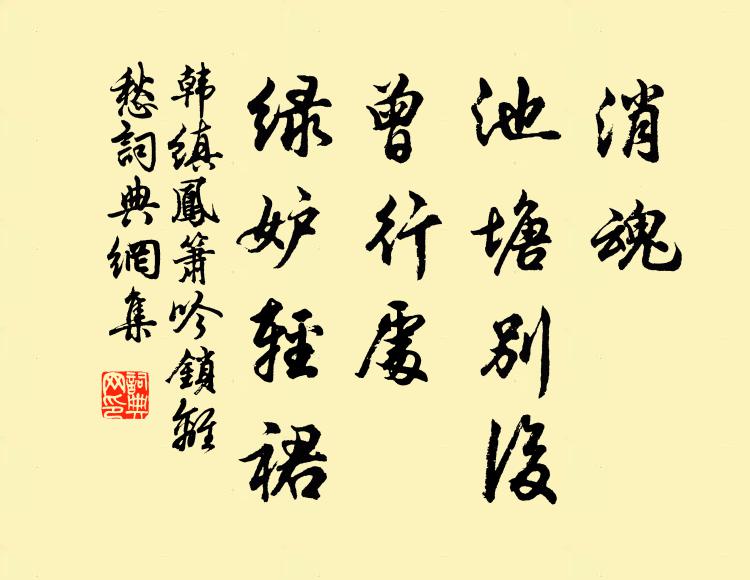 消魂
池塘別後
曾行處
绿妒輕裙
韩縝鳳簫吟鎖離
愁詞典網集
詞典网印